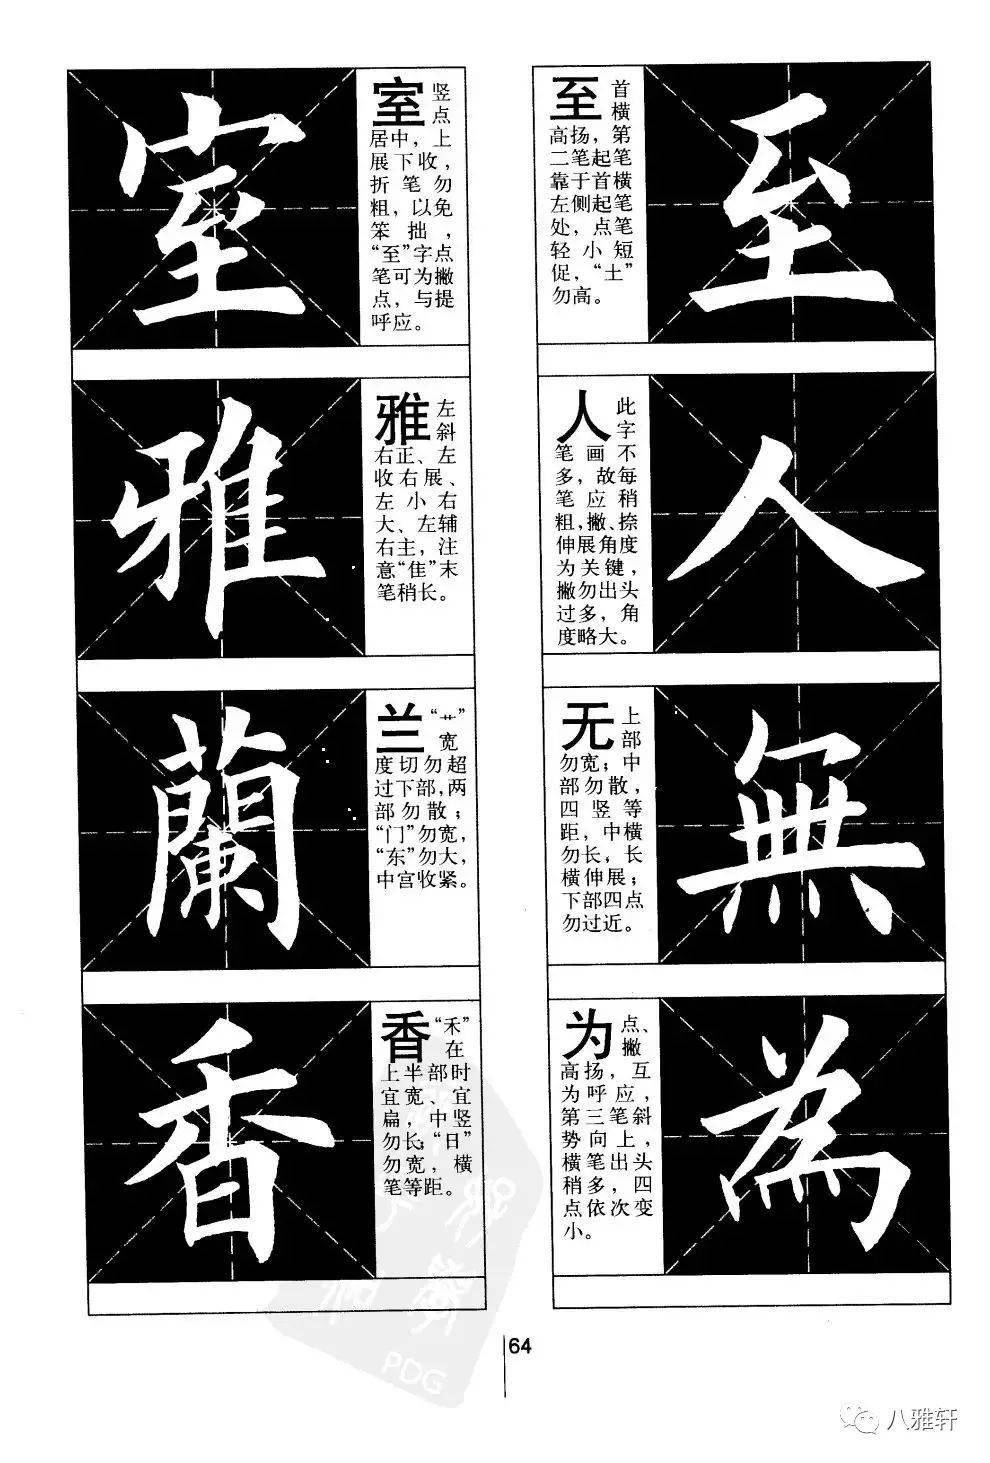 室
室竖
点
居中，上
展下收，
折笔勿
粗，以免
笨拙，
“至”字点
笔可为撇
点，与提
呼应。
雅
雅左
斜
右正、左
收右展、
左小右
大、左辅
右主，注
意“隹”末
笔稍长。
蘭
兰“艹”
宽
度切勿超
过下部，两
部勿散；
“门”勿宽，
“东”勿大，
中宫收紧。
香
香“禾”
在
上半部时
宜宽、宜
扁，中竖
勿长；“日”
勿宽，横
笔等距。
至首
横
高扬，第
二笔起笔
靠于首横
左侧起笔
处，点笔
轻小短
促，“土”
勿高。
至
人此
字
笔画不
多，故每
笔应稍
粗，撇、捺
伸展角度
为关键，
撇勿出头
过多，角
度略大。
人
无上
部
勿宽；中
部勿散，
四竖等
距，中横
勿长，长
横伸展；
下部四点
勿过近。
無
为点、
撇
高扬，互
为呼应，
第三笔斜
势向上，
横笔出头
稍多，四
点依次变
小。
為
64
PDG
八雅轩